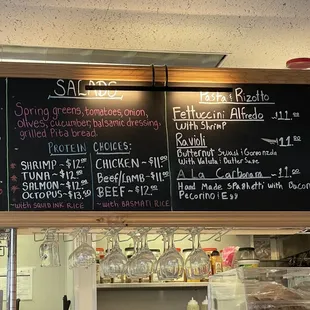 SALADS
Spring greens, tomatoes, onion,
olives, cucumber, balsamic dressing,
grilled Pita bread
PROTEIN CHOICES:
SHRIMP - $12.00
TUNA - $12.00
SALMON - $12.00
OCTOPUS - $13.50
with SQUID INK RICE
CHICKEN - $11.50
Beef/Lamb - $11.00
BEEF - $12.00
with BASMATI RICE
Pasta & Rizotto
Fettuccini Alfredo $11.00
With Shrimp
Ravioli $11.00
Butternut Squash & Gorgonzola
With Butter
A La Carbonara $11.00
Hand Made Spaghetti with Bacon
Pecorino & Egg